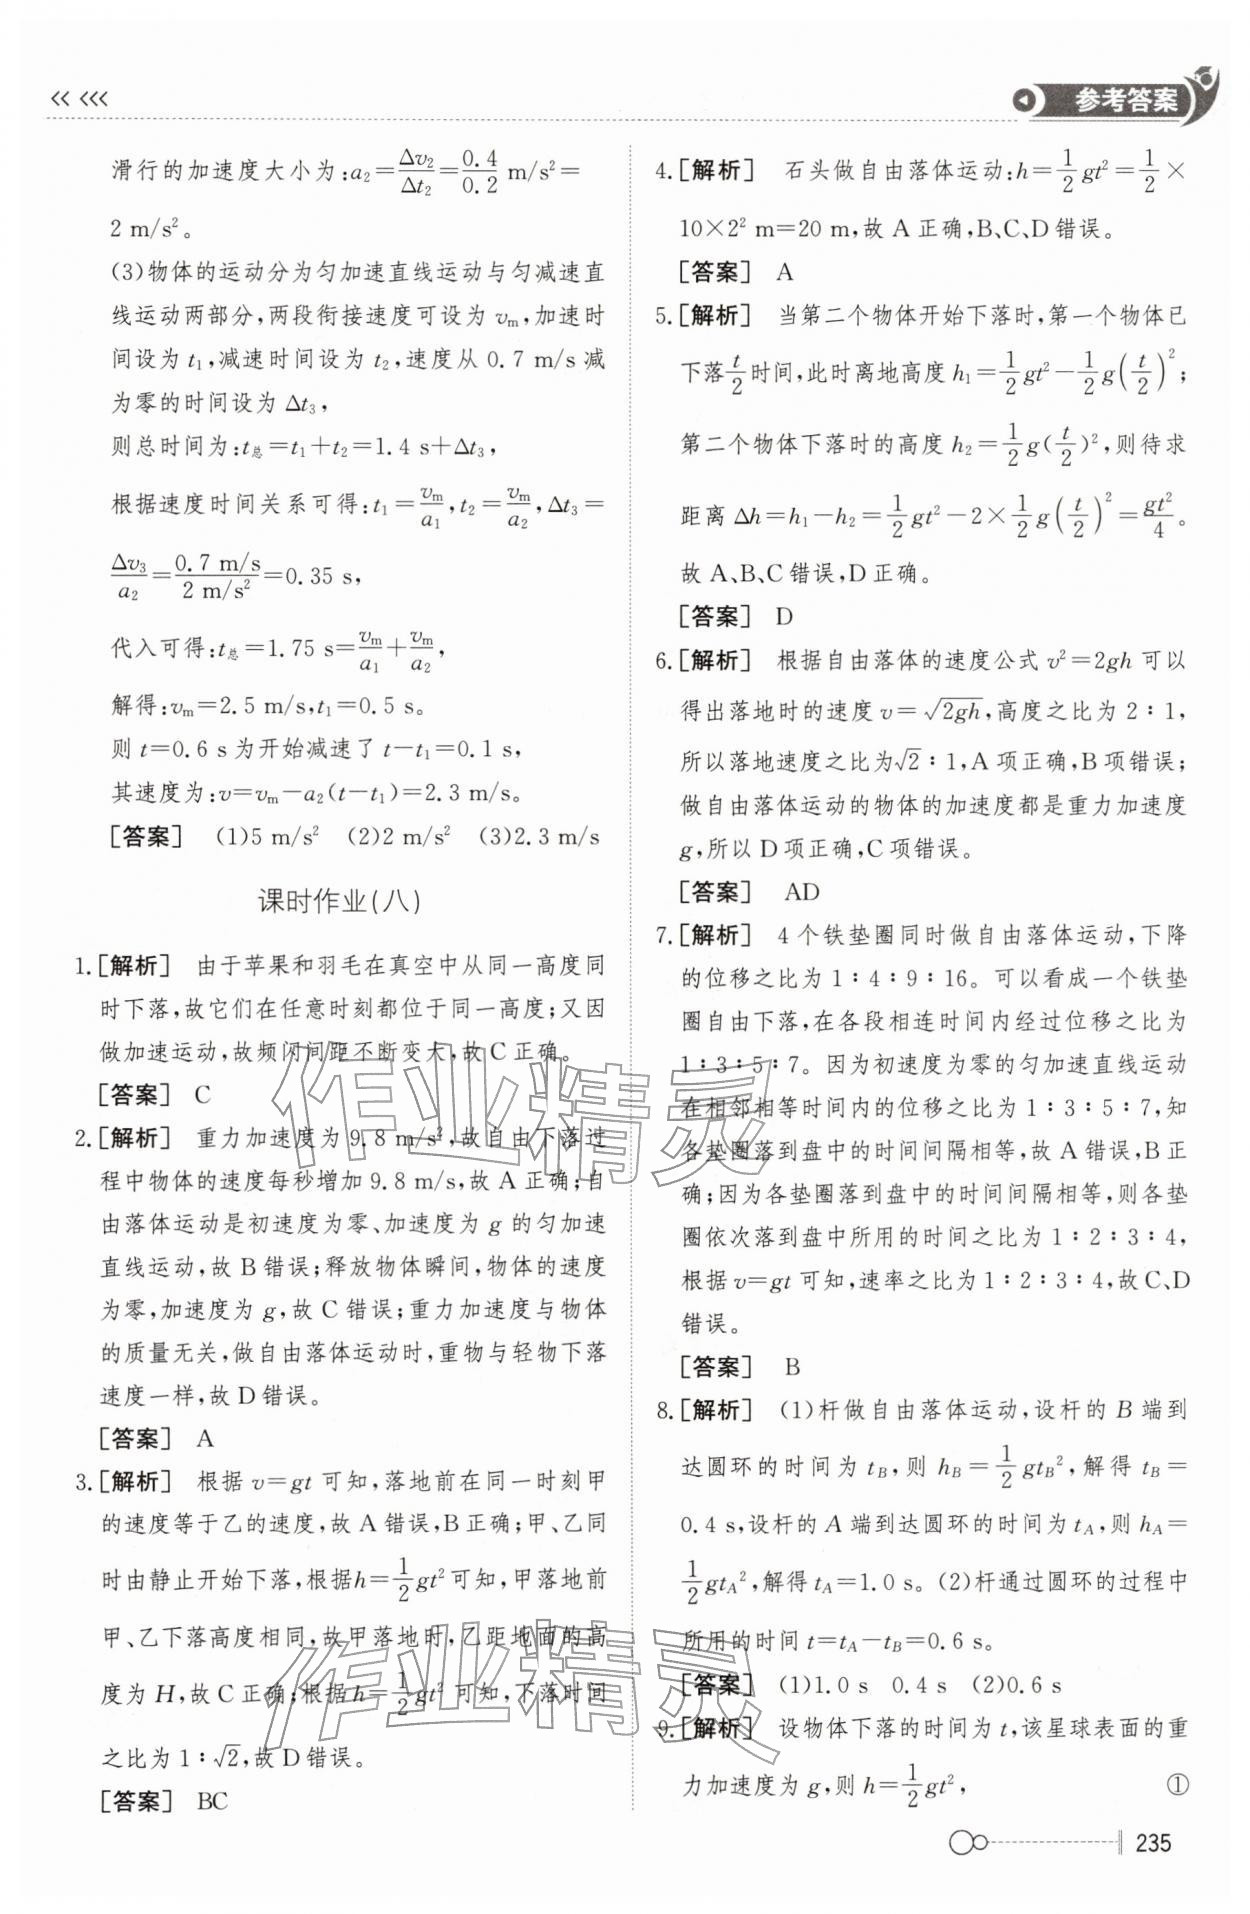 参考答案
滑行的加速度大小为:a₂=Δv₂/Δt₂=0.4/0.2 m/s²=
2 m/s²。
(3)物体的运动分为匀加速直线运动与匀减速直
线运动两部分,两段衔接速度可设为 vₘ,加速时
间设为 t₁,减速时间设为 t₂,速度从 0.7 m/s 减
为零的时间设为 Δt₃,
则总时间为:t总=t₁+t₂=1.4 s+Δt₃,
根据速度时间关系可得:t₁=vₘ/a₁,t₂=vₘ/a₂,Δt₃=
Δv₃/a₂=0.7 m/s / 2 m/s²=0.35 s,
代入可得:t总=1.75 s=vₘ/a₁+vₘ/a₂,
解得:vₘ=2.5 m/s,t₁=0.5 s。
则 t=0.6 s 为开始减速了 t-t₁=0.1 s,
其速度为:v=vₘ-a₂(t-t₁)=2.3 m/s。
[答案] (1)5 m/s² (2)2 m/s² (3)2.3 m/s
课时作业(八)
1.[解析] 由于苹果和羽毛在真空中从同一高度同
时下落,故它们在任意时刻都位于同一高度;又因
做加速运动,故频闪间距不断变大,故 C 正确。
[答案] C
2.[解析] 重力加速度为 9.8 m/s²,故自由下落过
程中物体的速度每秒增加 9.8 m/s,故 A 正确;自
由落体运动是初速度为零、加速度为 g 的匀加速
直线运动,故 B 错误;释放物体瞬间,物体的速度
为零,加速度为 g,故 C 错误;重力加速度与物体
的质量无关,做自由落体运动时,重物与轻物下落
速度一样,故 D 错误。
[答案] A
3.[解析] 根据 v=gt 可知,落地前在同一时刻甲
的速度等于乙的速度,故 A 错误,B 正确;甲、乙同
时由静止开始下落,根据h=1/2 gt²可知,甲落地前
甲、乙下落高度相同,故甲落地时,乙距地面的高
度为 H,故 C 正确;根据h=1/2 gt²可知,下落时间
之比为 1∶√2,故 D 错误。
[答案] BC
4.[解析] 石头做自由落体运动:h=1/2 gt²=1/2×
10×2² m=20 m,故 A 正确,B、C、D 错误。
[答案] A
5.[解析] 当第二个物体开始下落时,第一个物体已
下落t/2时间,此时离地高度 h₁=1/2 gt²-1/2 g(t/2)²;
第二个物体下落时的高度 h₂=1/2 g(t/2)²,则待求
距离 Δh=h₁-h₂=1/2 gt²-2×1/2 g(t/2)²=gt²/4。
故 A、B、C 错误,D 正确。
[答案] D
6.[解析] 根据自由落体的速度公式 v²=2gh 可以
得出落地时的速度 v=√2gh,高度之比为 2∶1,
所以落地速度之比为√2∶1,A 项正确,B 项错误;
做自由落体运动的物体的加速度都是重力加速度
g,所以 D 项正确,C 项错误。
[答案] AD
7.[解析] 4 个铁垫圈同时做自由落体运动,下降
的位移之比为 1∶4∶9∶16。可以看成一个铁垫
圈自由下落,在各段相连时间内经过位移之比为
1∶3∶5∶7。因为初速度为零的匀加速直线运动
在相邻相等时间内的位移之比为 1∶3∶5∶7,知
各垫圈落到盘中的时间间隔相等,故 A 错误,B 正
确;因为各垫圈落到盘中的时间间隔相等,则各垫
圈依次落到盘中所用的时间之比为 1∶2∶3∶4,
根据 v=gt 可知,速率之比为 1∶2∶3∶4,故 C、D
错误。
[答案] B
8.[解析] (1)杆做自由落体运动,设杆的 B 端到
达圆环的时间为 t_B,则 h_B=1/2 gt_B²,解得 t_B=
0.4 s,设杆的 A 端到达圆环的时间为 t_A,则 h_A=
1/2 gt_A²,解得 t_A=1.0 s。(2)杆通过圆环的过程中
所用的时间 t=t_A-t_B=0.6 s。
[答案] (1)1.0 s 0.4 s (2)0.6 s
9.[解析] 设物体下落的时间为 t,该星球表面的重
力加速度为 g,则 h=1/2 gt², ①
235
作业精灵
作业精灵